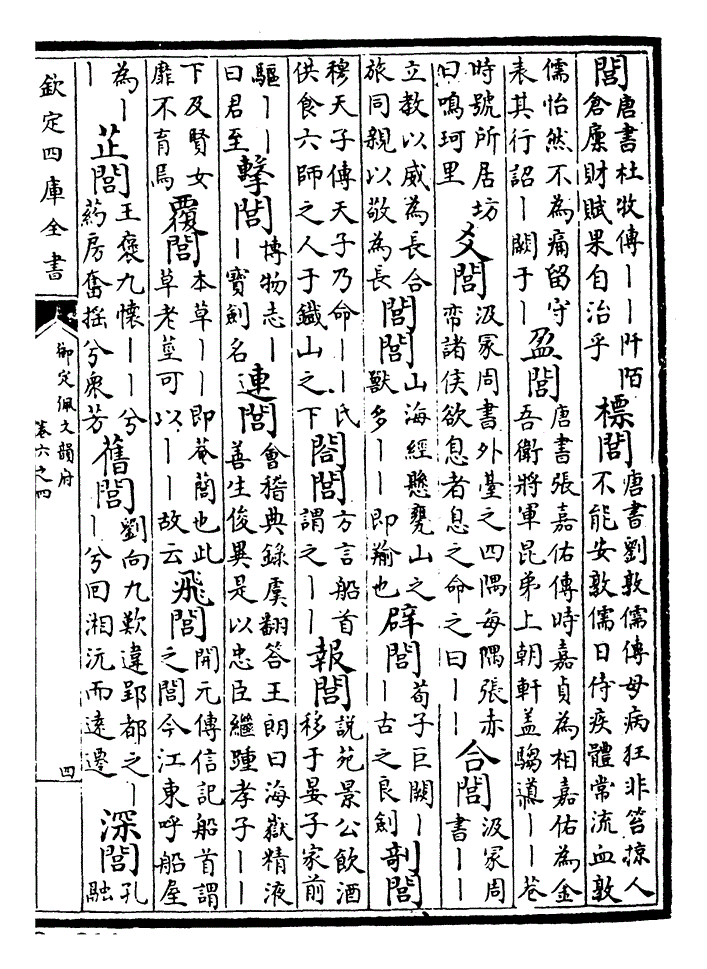 閭唐書杜牧傳丨丨阡陌倉廩財賦果自治乎標閭唐書劉敦儒傳母病狂非笞掠人不能安敦儒日侍疾體常流血敦
儒怡然不為痛留守表其行詔丨闕于丨盈閭唐書張嘉佑傳時嘉貞為相嘉佑為金吾衛將軍昆弟上朝軒盖騶導丨丨巷
時號所居坊曰鳴珂里爻閭汲冢周書外臺之四隅每隅張赤帟諸侯欲息者息之命之曰丨丨合閭汲冢周書丨丨
立教以威為長合旅同親以敬為長閭閭山海經懸甕山之獸多丨丨即羭也辟閭荀子巨闕丨丨古之良劍剞閭
穆天子傳天子乃命丨丨氏供食六師之人于鐵山之下閤閭方言船首謂之丨丨報閭說苑景公飲酒移于晏子家前
驅丨丨曰君至擊閭博物志丨丨寳劍名連閭會稽典錄虞翻答王朗曰海嶽精液善生俊異是以忠臣繼踵孝子丨丨
下及賢女靡不育焉覆閭本草丨丨即菴䕡也此草老莖可以丨丨故云飛閭開元傳信記船首謂之閭今江東呼船屋
為丨丨芷閭王褒九懷丨丨兮藥房奮搖兮衆芳舊閭劉向九歎違郢都之丨丨兮回湘沅而遠遷深閭孔融
欽定四庫全書
御定佩文韻府
卷六之四
四